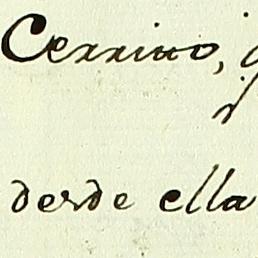 Cerrito,
desde ella